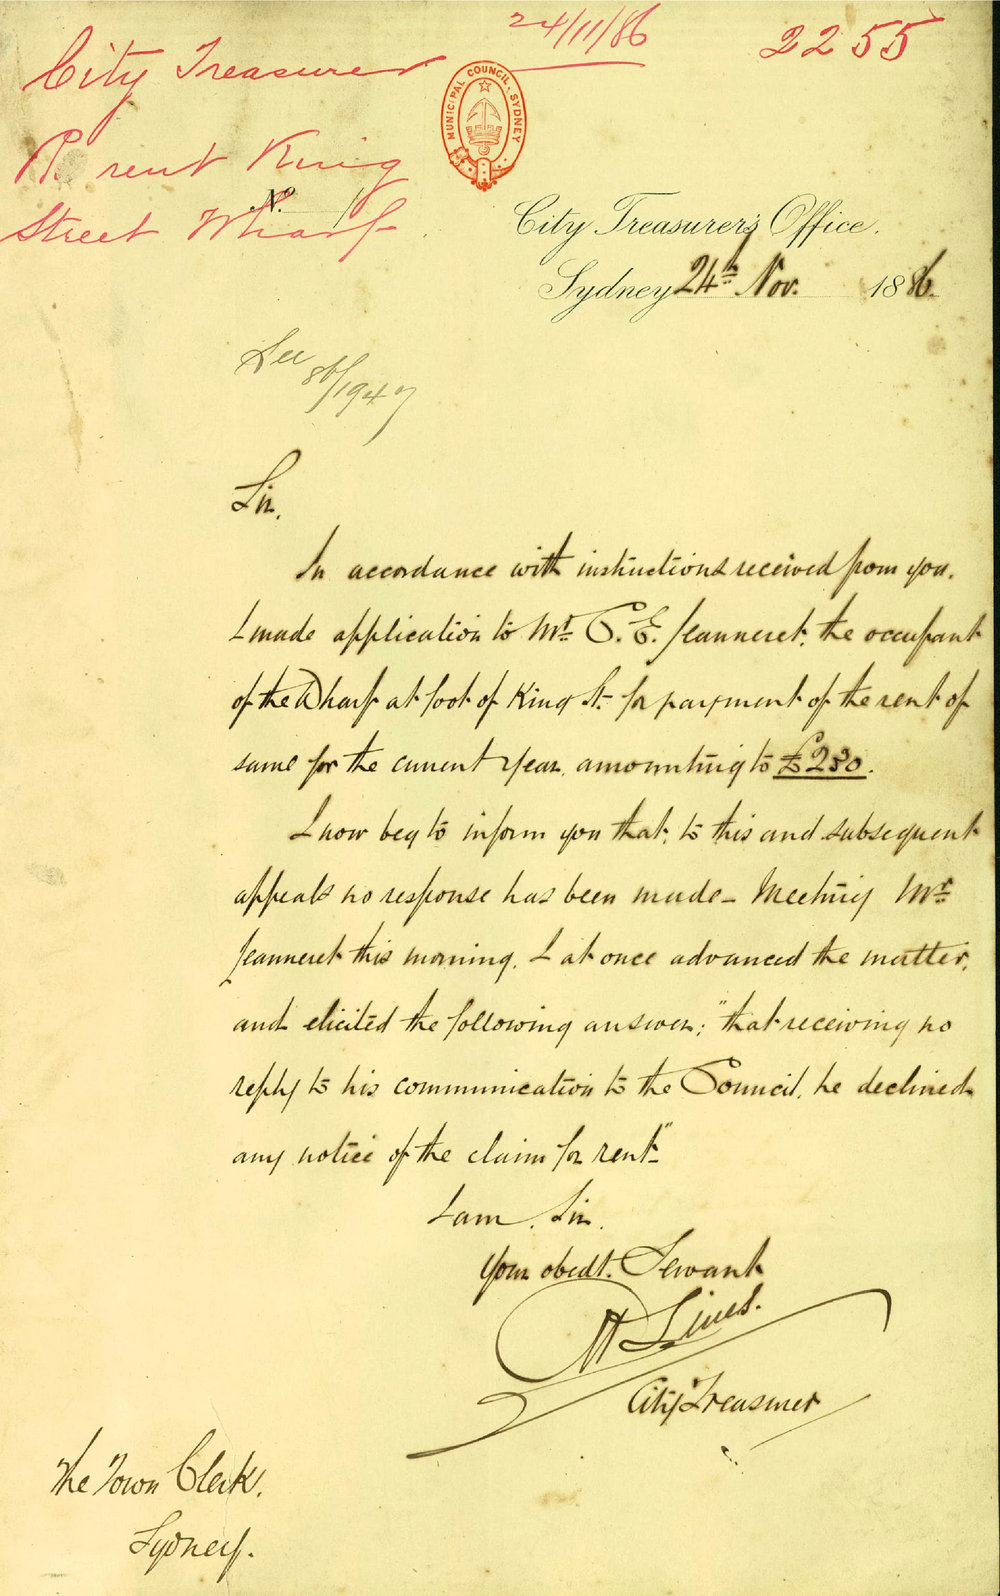 24/11/86
2255
City Treasurer
Re rent King
Street Wharf.
MUNICIPAL COUNCIL. SYDNEY
No.
City Treasurer's Office.
Sydney 24th Nov. 1886.
See 86/1947
Sir,
In accordance with instructions received from you,
I made application to Mr. C. E. Jeanneret, the occupant
of the Wharf at foot of King St. for payment of the rent of
same for the current year, amounting to £230.
I now beg to inform you that, to this and subsequent
appeals no response has been made - Meeting Mr
Jeanneret this morning, I at once advanced the matter,
and elicited the following answer; "that receiving no
reply to his communication to the Council, he declined
any notice of the claim for rent"
I am, Sir,
Your obedt. Servant
Lines.
City Treasurer
The Town Clerk.
Sydney.